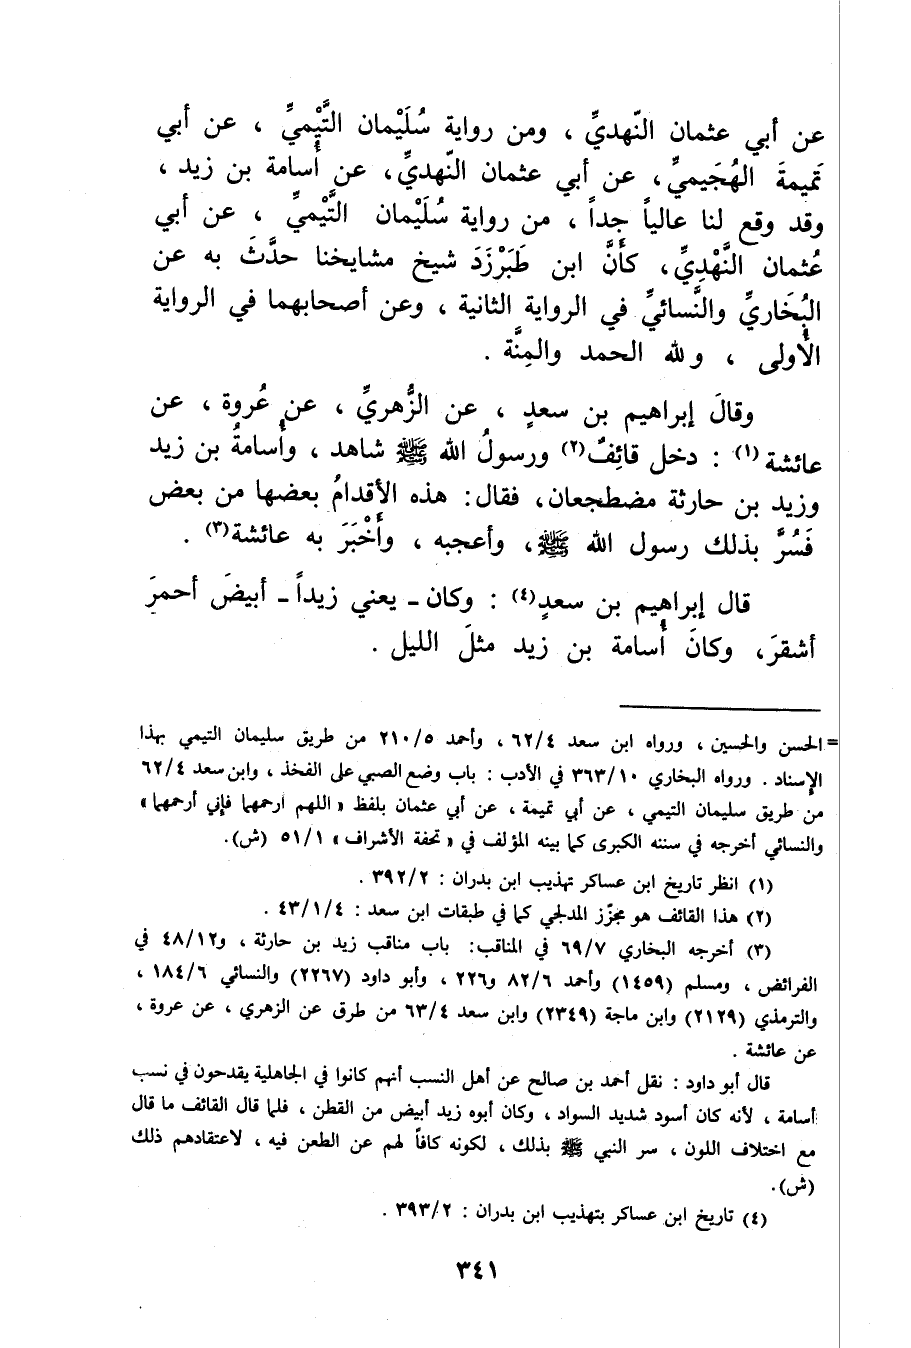 عن أبي عثمان النّهديِّ ، ومن رواية سُلَيْمان التَّيْميِّ ، عن أبي
تَمِيمةَ الهُجَيميِّ، عن أبي عثمان النّهديِّ، عن أُسامة بن زيد ،
وقد وقع لنا عالياً جداً ، من رواية سُلَيْمان التَّيْميِّ ، عن أبي
عُثمان النَّهْدِيِّ، كأَنَّ ابن طَبَرْزَدَ شيخ مشايخنا حدَّثَ به عن
البُخَاريِّ والنَّسائيِّ في الرواية الثانية ، وعن أصحابهما في الرواية
الأُولى ، ولله الحمد والمِنَّة .
وقالَ إبراهيم بن سعدٍ ، عن الزُّهريِّ ، عن عُروة ، عن
عائشة (١) : دخل قائِفٌ (٢) ورسولُ الله ﷺ شاهد ، وأُسامةُ بن زيد
وزيد بن حارثة مضطجعان، فقال: هذه الأقدامُ بعضها من بعض
فَسُرَّ بذلك رسول الله ﷺ، وأعجبه ، وأَخْبَرَ به عائشة (٣) .
قال إبراهيم بن سعدٍ (٤) : وكان ـ يعني زيداً ـ أبيضَ أحمرَ
أشقرَ، وكانَ أُسامة بن زيد مثلَ الليل .
= الحسن والحسين ، ورواه ابن سعد ٦٢/٤ ، وأحمد ٢١٠/٥ من طريق سليمان التيمي بهذا
الإسناد . ورواه البخاري ٣٦٣/١٠ في الأدب : باب وضع الصبي على الفخذ ، وابن سعد ٦٢/٤
من طريق سليمان التيمي ، عن أبي تميمة ، عن أبي عثمان بلفظ « اللهم ارحمهما فإني أرحمهما »
والنسائي أخرجه في سننه الكبرى كما بينه المؤلف في « تحفة الأشراف » ٥١/١ (ش).
(١) انظر تاريخ ابن عساكر تهذيب ابن بدران : ٣٩٢/٢ .
(٢) هذا القائف هو مجزّز المدلجي كما في طبقات ابن سعد : ٤٣/١/٤ .
(٣) أخرجه البخاري ٦٩/٧ في المناقب: باب مناقب زيد بن حارثة ، و٤٨/١٢ في
الفرائض ، ومسلم (١٤٥٩) وأحمد ٨٢/٦ و٢٢٦ ، وأبو داود (٢٢٦٧) والنسائي ١٨٤/٦ ،
والترمذي (٢١٢٩) وابن ماجة (٢٣٤٩) وابن سعد ٦٣/٤ من طرق عن الزهري ، عن عروة ،
عن عائشة .
قال أبو داود : نقل أحمد بن صالح عن أهل النسب أنهم كانوا في الجاهلية يقدحون في نسب
أسامة ، لأنه كان أسود شديد السواد ، وكان أبوه زيد أبيض من القطن ، فلما قال القائف ما قال
مع اختلاف اللون ، سر النبي ﷺ بذلك ، لكونه كافاً لهم عن الطعن فيه ، لاعتقادهم ذلك
(ش).
(٤) تاريخ ابن عساكر بتهذيب ابن بدران : ٣٩٣/٢ .
٣٤١